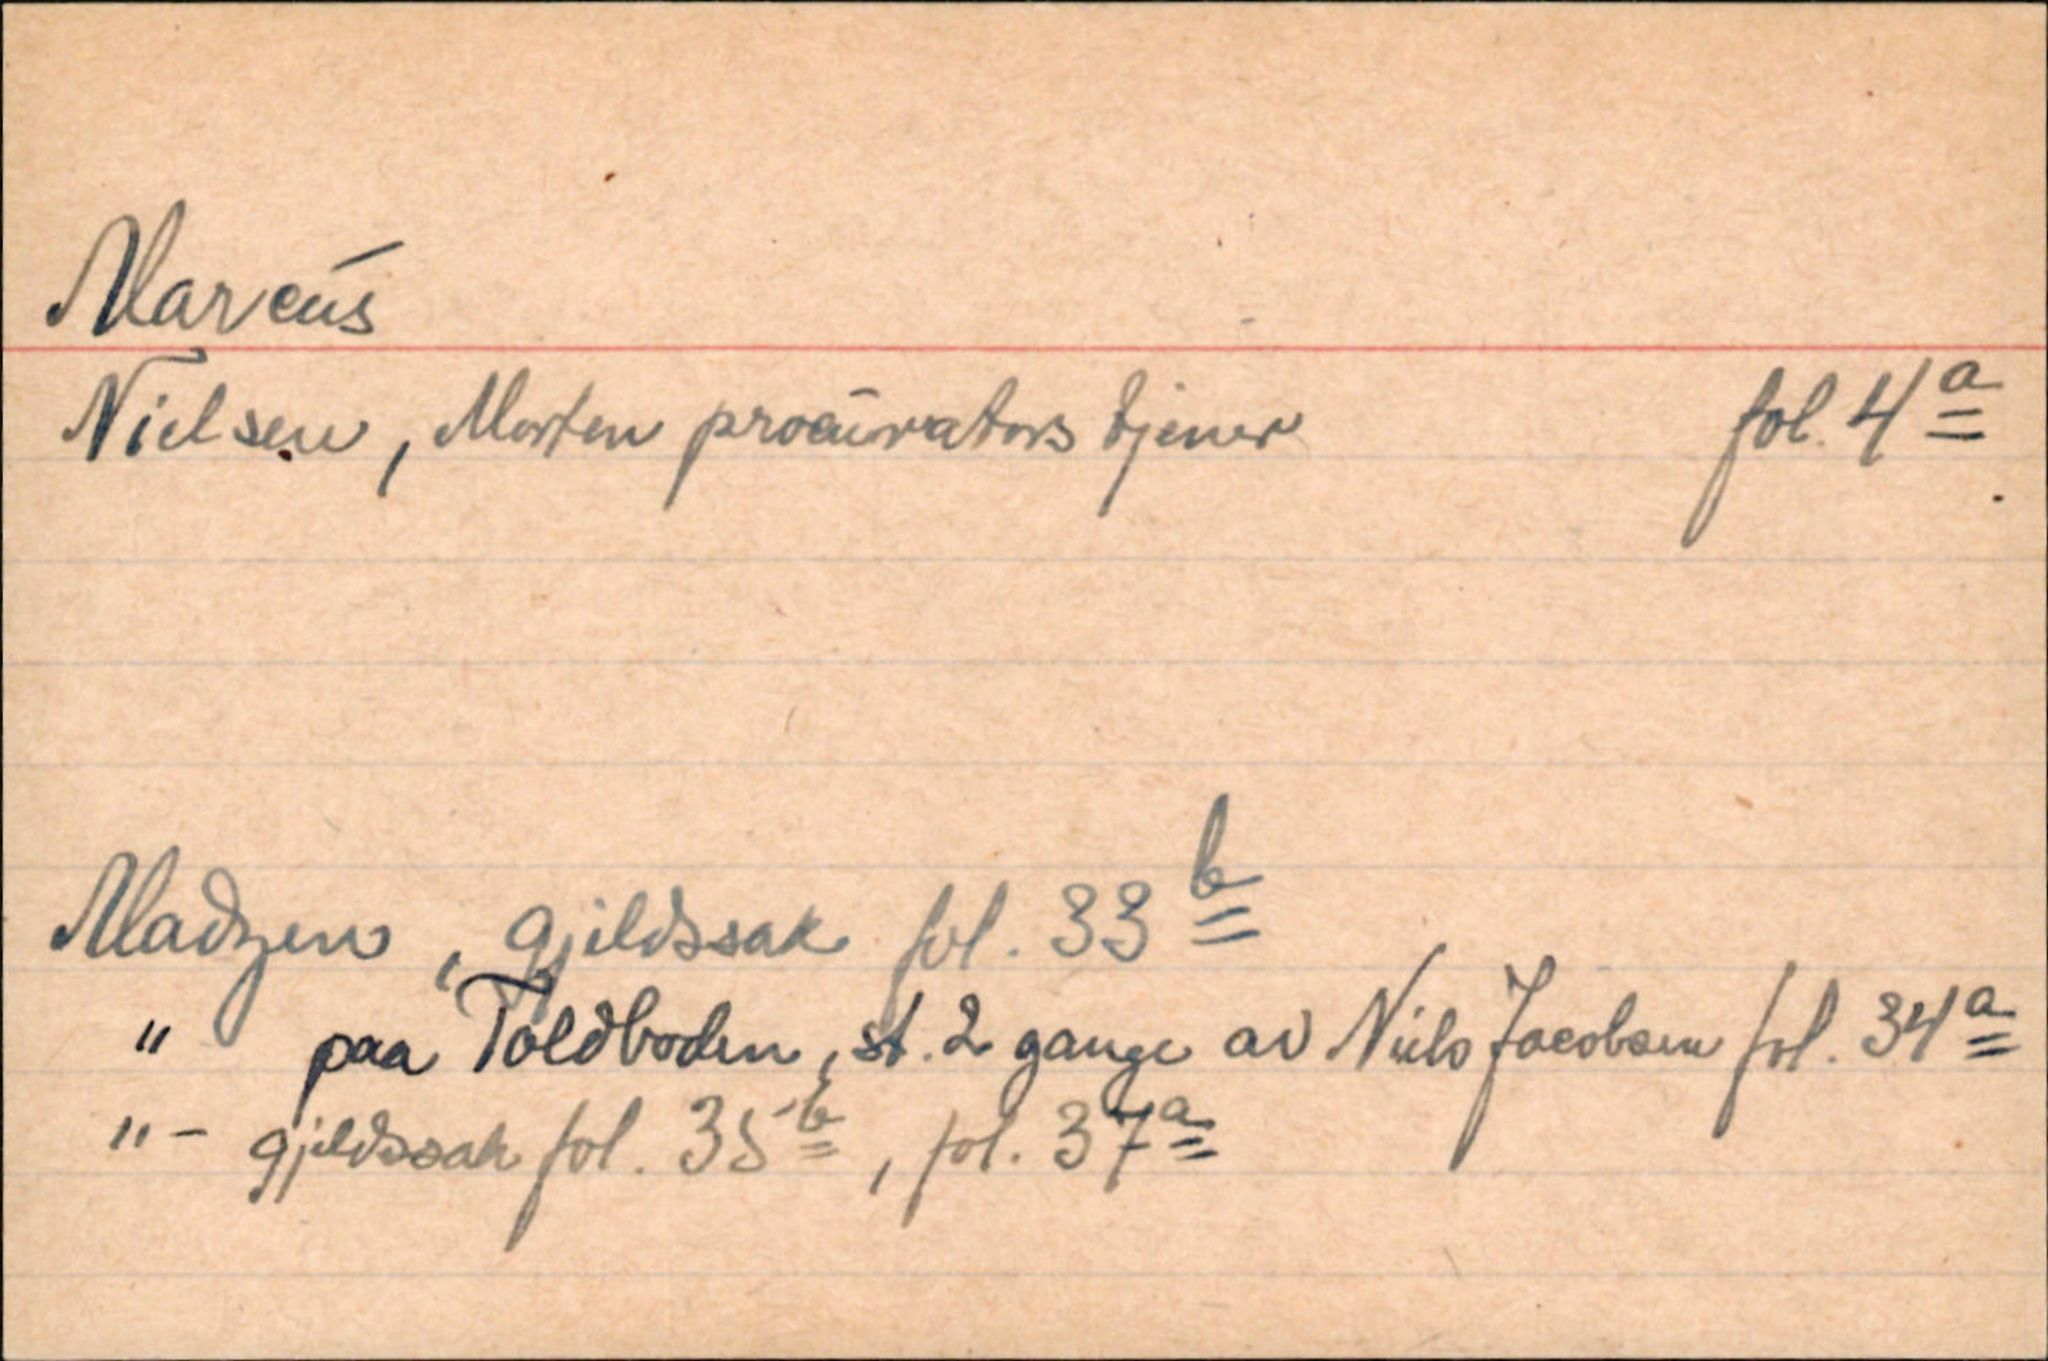 Marcus
Nielsen, Morten procurators tjener fol. 4a
Madzen, gjeldssak fol. 33b
" paa Toldboden, st. 2 gange av Niels Jacobsen fol. 34a
"- gjeldssak fol. 35b, fol. 37a